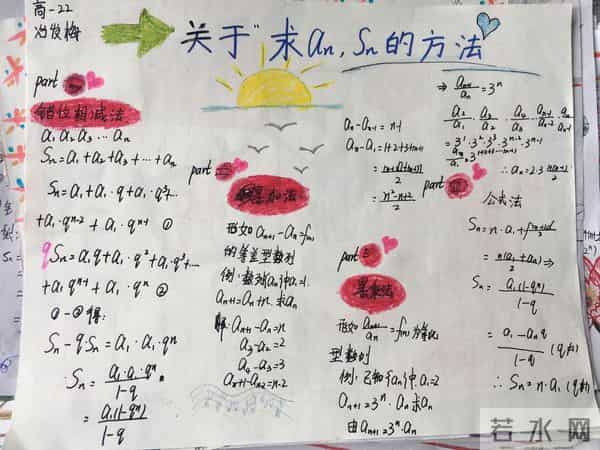 商-22
关于"求an,Sn的方法
part
错位相减法
a₁ a₂ a₃ … an
Sn=a₁+a₂+a₃+…+an
Sn=a₁+a₁·q+a₁·q³…
+a₁·qⁿ⁻²+a₁·qⁿ⁻¹ ①
qSn=a₁q+a₁·q²+a₁·q³+…
+a₁qⁿ⁻¹+a₁·qⁿ ②
①-②得:
Sn-q·Sn=a₁-a₁·qⁿ
Sn=a₁-a₁·qⁿ/1-q
=a₁(1-qⁿ)/1-q
part
累加法
形如an+1-an=f(n)
的等差型数列
例:数列{an}中a₁=1.
an+1=an+n.求an
解:an+1-an=n
a₃-a₂=2
a₄-a₃=3
an-an-1=n-1
an-a₁=1+2+3+n-1
=n²-n+2/2
part 3
累乘法
形如an+1/an=f(n)为等比
型数列
例:已知{an}中,a₁=2
an+1=3ⁿ·an求an
由an+1=3ⁿ·an
⇒an+1/an=3ⁿ
a₂/a₁·a₃/a₂·a₄/a₃
=3¹·3²·3³·3ⁿ⁻²·3ⁿ⁻¹
part
公式法
=n(a₁+an)/2⇒
Sn=a₁(1-qⁿ)/1-q
=a₁-anq/1-q(q≠1)
∴Sn=n·a₁(q=1)
若水网